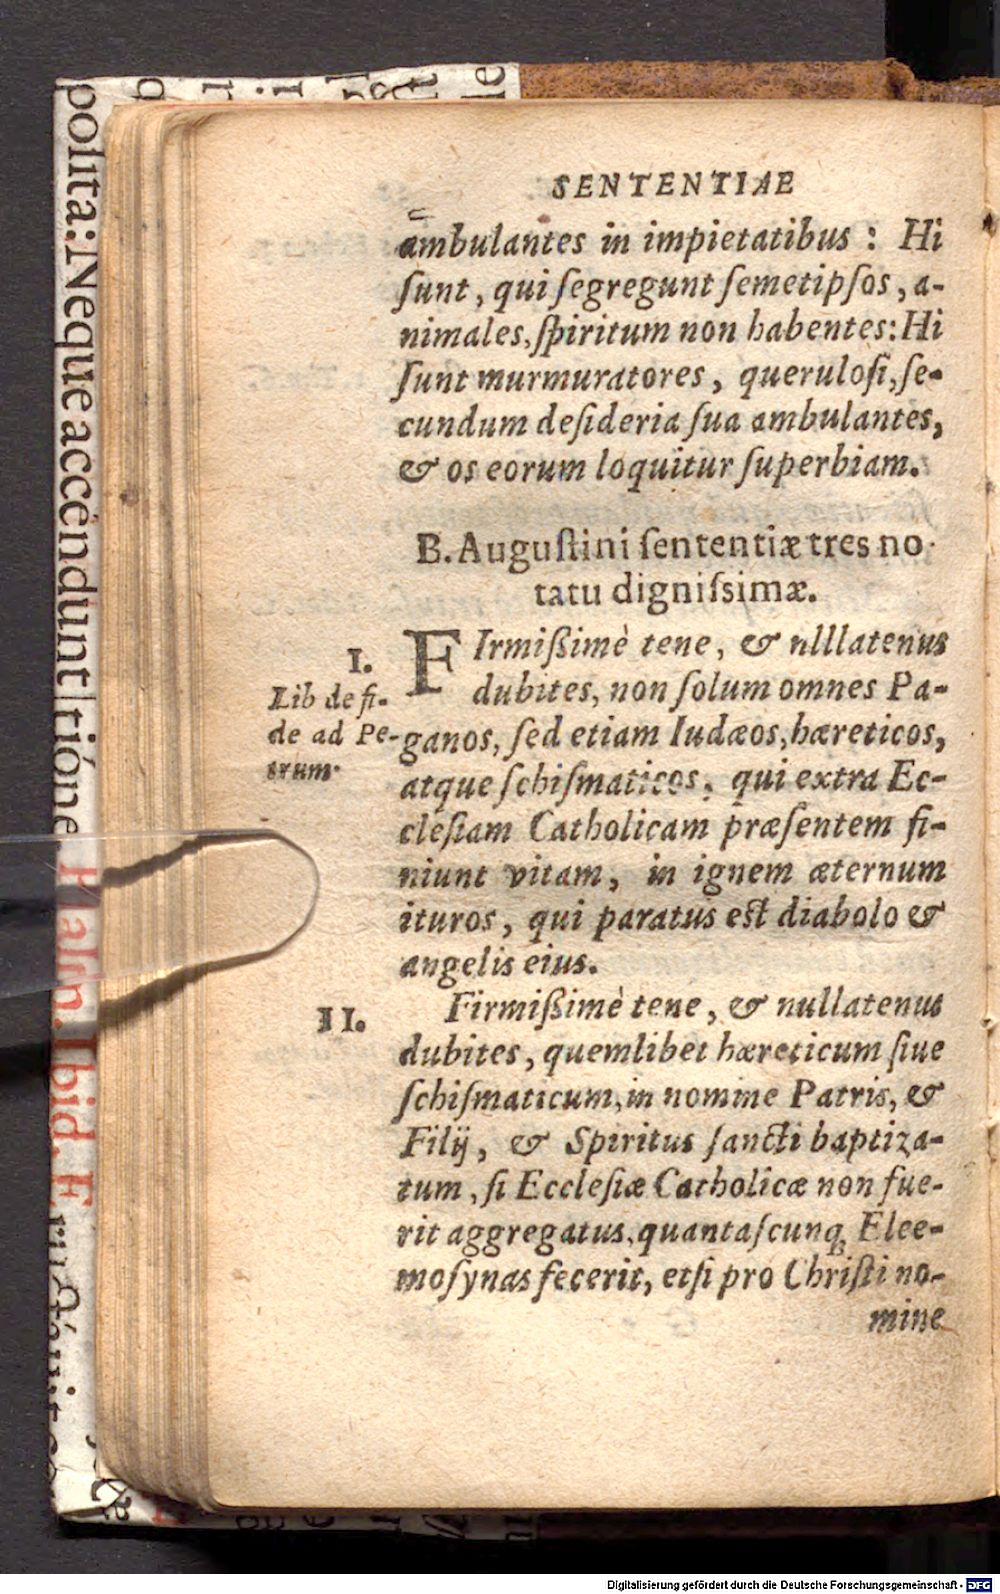 SENTENTIAE
ambulantes in impietatibus : Hi
ſunt, qui ſegregunt ſemetipſos, a-
nimales, ſpiritum non habentes: Hi
ſunt murmuratores, queruloſi, ſe-
cundum deſideria ſua ambulantes,
& os eorum loquitur ſuperbiam.
B. Auguſtini ſententiæ tres no
tatu digniſsimæ.
I.
Lib de fi-
de ad Pe-
trum.
FIrmiſſimè tene, & nlllatenus
dubites, non ſolum omnes Pa-
ganos, ſed etiam Iudæos, hæreticos,
atque ſchiſmaticos, qui extra Ec-
cleſiam Catholicam præſentem fi-
niunt vitam, in ignem æternum
ituros, qui paratus eſt diabolo &
angelis eius.
II.
Firmiſſimè tene, & nullatenus
dubites, quemlibet hæreticum ſiue
ſchiſmaticum, in nomine Patris, &
Filij, & Spiritus ſancti baptiza-
tum, ſi Eccleſiæ Catholicæ non fue-
rit aggregatus, quantaſcunq; Elee-
moſynas fecerit, etſi pro Chriſti no-
mine
polita: Neque accéndunt
tióne
Ibid. F
Digitalisierung gefördert durch die Deutsche Forschungsgemeinschaft - DFG